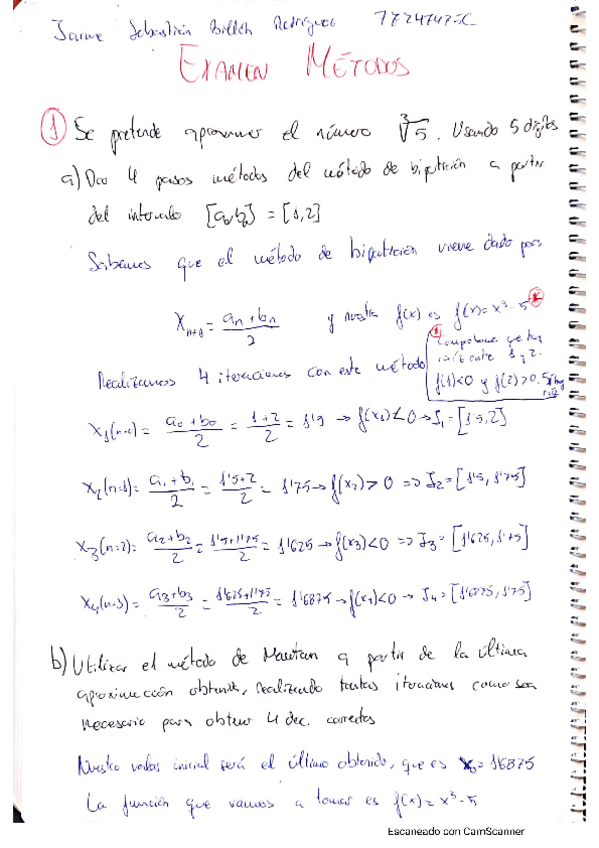 Jaime Sebastián Rodríguez
EXAMEN MÉTODOS
① Se pretende aproximar el número ∛5. Usando 5 dígitos
a) Dar 4 pasos métodos del método de bipartición a partir
del intervalo [a₀,b₀] = [1,2]
Sabemos que el método de bipartición viene dado por
Xₙ₊₁ = (aₙ + bₙ)/2 y nuestra f(x) es f(x)=x³-5
Comprobamos que hay
entre 1 y 2.
f(1)<0 y f(2)>0.
Realizamos 4 iteraciones con este método
X₁(n=0) = (a₀+b₀)/2 = (1+2)/2 = 1'5 → f(x₁)<0 → I₁ = [1'5,2]
X₂(n=1) = (a₁+b₁)/2 = (1'5+2)/2 = 1'75 → f(x₂)>0 => I₂ = [1'5, 1'75]
X₃(n=2) = (a₂+b₂)/2 = (1'5+1'75)/2 = 1'625 → f(x₃)<0 => I₃ = [1'625, 1'75]
X₄(n=3) = (a₃+b₃)/2 = (1'625+1'75)/2 = 1'6875 → f(x₄)<0 → I₄ = [1'6875, 1'75]
b) Utilizar el método de Newton a partir de la última
aproximación obtenida, realizando tantas iteraciones como sea
necesario para obtener 4 dec. correctos
Nuestro valor inicial será el último obtenido, que es x₀ = 1'6875
La función que vamos a tomar es f(x) = x³-5
Escaneado con CamScanner